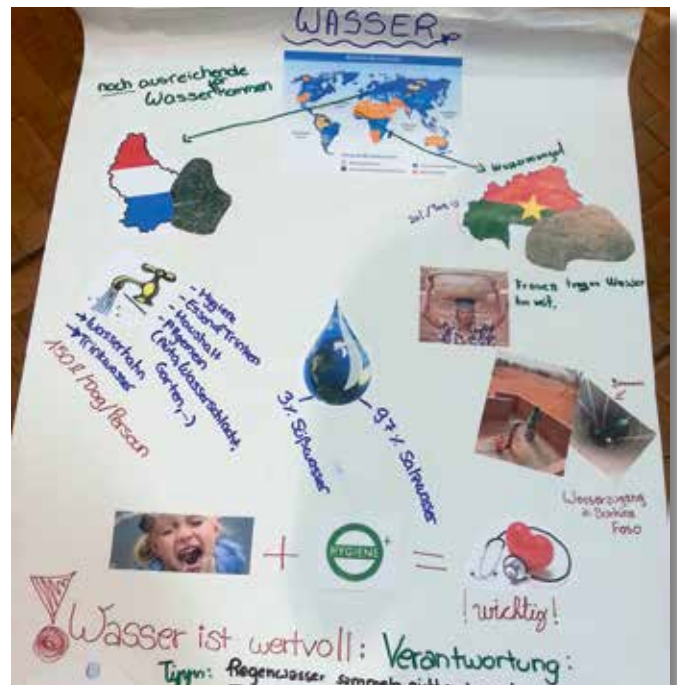 WASSER
noch ausreichende
Wasser vor
kommen
Wassermangel
- Hygiene
- Essen/Trinken
- Haushalt
- Allgemein
(Auto, Wasserschlacht,
Garten, ...)
→ Wasserhahn
→ Trinkwasser
150 l / Dag / Persoun
3% Süßwasser
97% Salzwasser
Frauen tragen Wasser
Brunnen
Wasserzugang
in Burkina
Faso
+
HYGIENE
+
=
! wichtig !
Wasser ist wertvoll: Verantwortung:
Tipps: Regenwasser sammeln